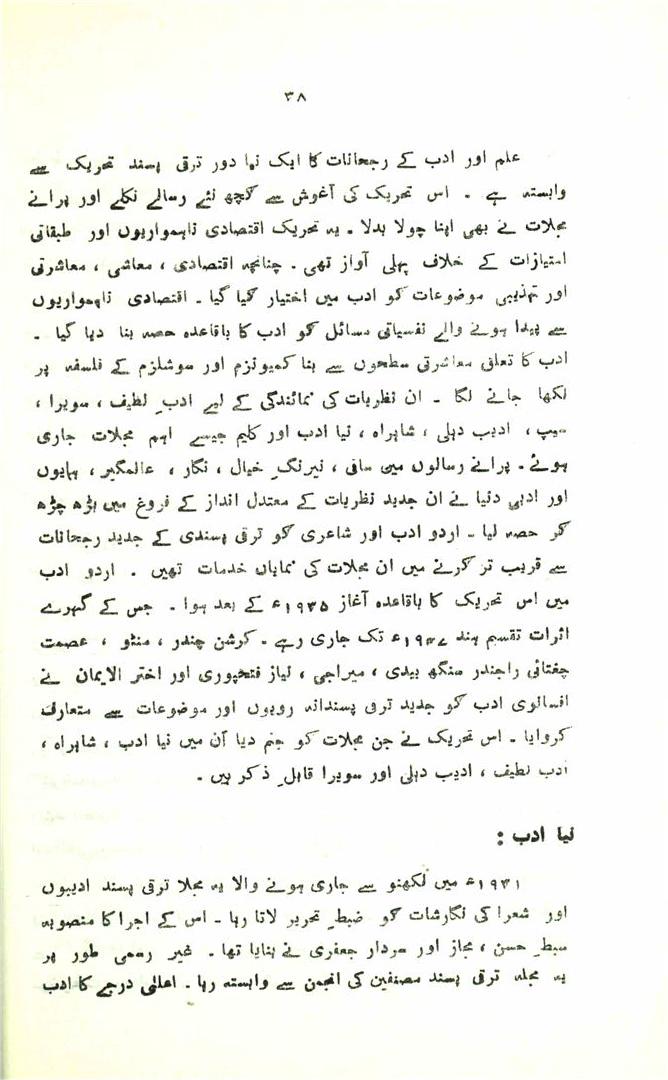 ۳۸
علم اور ادب کے رجحانات کا ایک نیا دور ترقی پسند تحریک سے
وابستہ ہے ۔ اس تحریک کی آغوش سے کچھ نئے رسالے نکلے اور پرانے
مجلات نے بھی اپنا چولا بدلا ۔ یہ تحریک اقتصادی ناہمواریوں اور طبقاتی
امتیازات کے خلاف پہلی آواز تھی ۔ چنانچہ اقتصادی ، معاشی ، معاشرتی
اور تہذیبی موضوعات کو ادب میں اختیار کیا گیا ۔ اقتصادی ناہمواریوں
سے پیدا ہونے والے نفسیاتی مسائل کو ادب کا باقاعدہ حصہ بنا دیا گیا ۔
ادب کا تعلق معاشرتی سطحوں سے بنا کمیونزم اور سوشلزم کے فلسفہ پر
لکھا جانے لگا ۔ ان نظریات کی نمائندگی کے لیے ادبِ لطیف ، سویرا ،
سیپ ، ادیب دہلی ، شاہراہ ، نیا ادب اور کلیم جیسے اہم مجلات جاری
ہوئے ۔ پرانے رسالوں میں ساقی ، نیرنگِ خیال ، نگار ، عالمگیر ، ہمایوں
اور ادبی دنیا نے ان جدید نظریات کے معتدل انداز کے فروغ میں بڑھ چڑھ
کر حصہ لیا ۔ اردو ادب اور شاعری کو ترقی پسندی کے جدید رجحانات
سے قریب تر کرنے میں ان مجلات کی نمایاں خدمات تھیں ۔ اردو ادب
میں اس تحریک کا باقاعدہ آغاز ۱۹۳۵ء کے بعد ہوا ۔ جس کے گہرے
اثرات تقسیم ہند ۱۹۴۷ء تک جاری رہے ۔ کرشن چندر ، منٹو ، عصمت
چغتائی راجندر سنگھ بیدی ، میراجی ، نیاز فتحپوری اور اختر الایمان نے
افسانوی ادب کو جدید ترقی پسندانہ رویوں اور موضوعات سے متعارف
کروایا ۔ اس تحریک نے جن مجلات کو جنم دیا اُن میں نیا ادب ، شاہراہ ،
ادب لطیف ، ادیب دہلی اور سویرا قابلِ ذکر ہیں ۔
نیا ادب :
۱۹۴۱ء میں لکھنو سے جاری ہونے والا یہ مجلا ترقی پسند ادیبوں
اور شعرا کی نگارشات کو ضبطِ تحریر لاتا رہا ۔ اس کے اجرا کا منصوبہ
سبطِ حسن ، مجاز اور سردار جعفری نے بنایا تھا ۔ غیر رسمی طور پر
یہ مجلہ ترقی پسند مصنفین کی انجمن سے وابستہ رہا ۔ اعلٰی درجے کا ادب